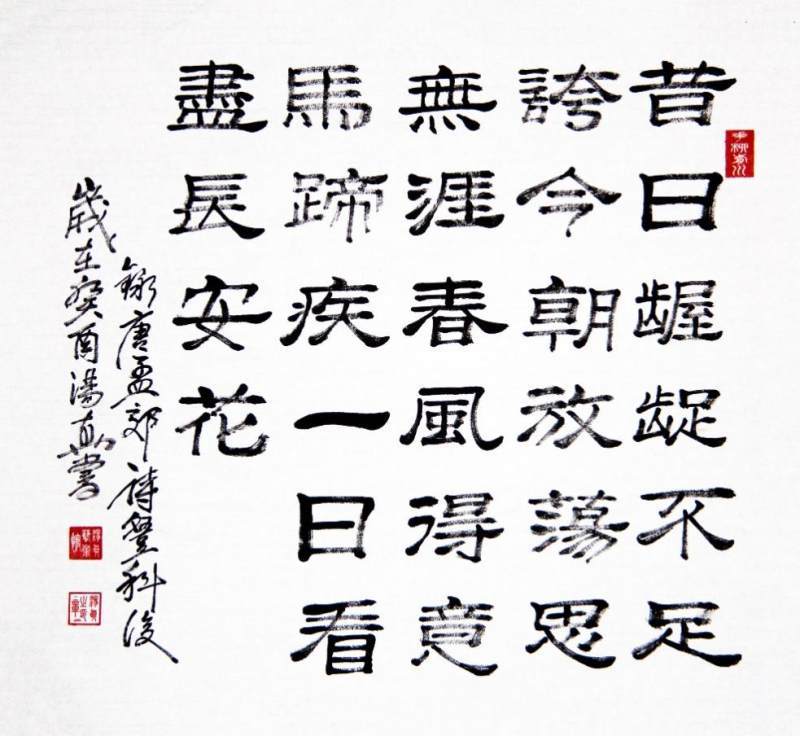 昔日龌龊不足
誇今朝放蕩思
無涯春風得意
馬蹄疾一日看
盡長安花
錄唐孟郊詩登科後
歲在癸酉湯真書